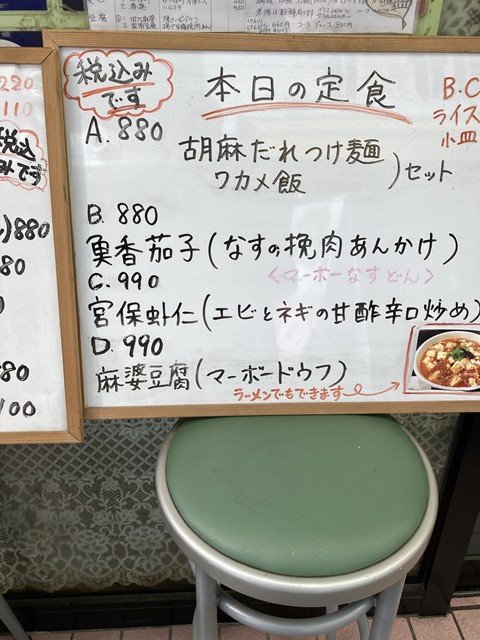 税込み
です
本日の定食
B.C
ライス
小皿
A. 880
胡麻だれつけ麺
ワカメ飯
)セット
B. 880
魚香茄子(なすの挽肉あんかけ)
<マーボーなすどん>
C. 990
宮保虾仁(エビとネギの甘酢辛口炒め)
D. 990
麻婆豆腐(マーボードウフ)
ラーメンでもできます
220
110
税込
みです
)880
80
80
100